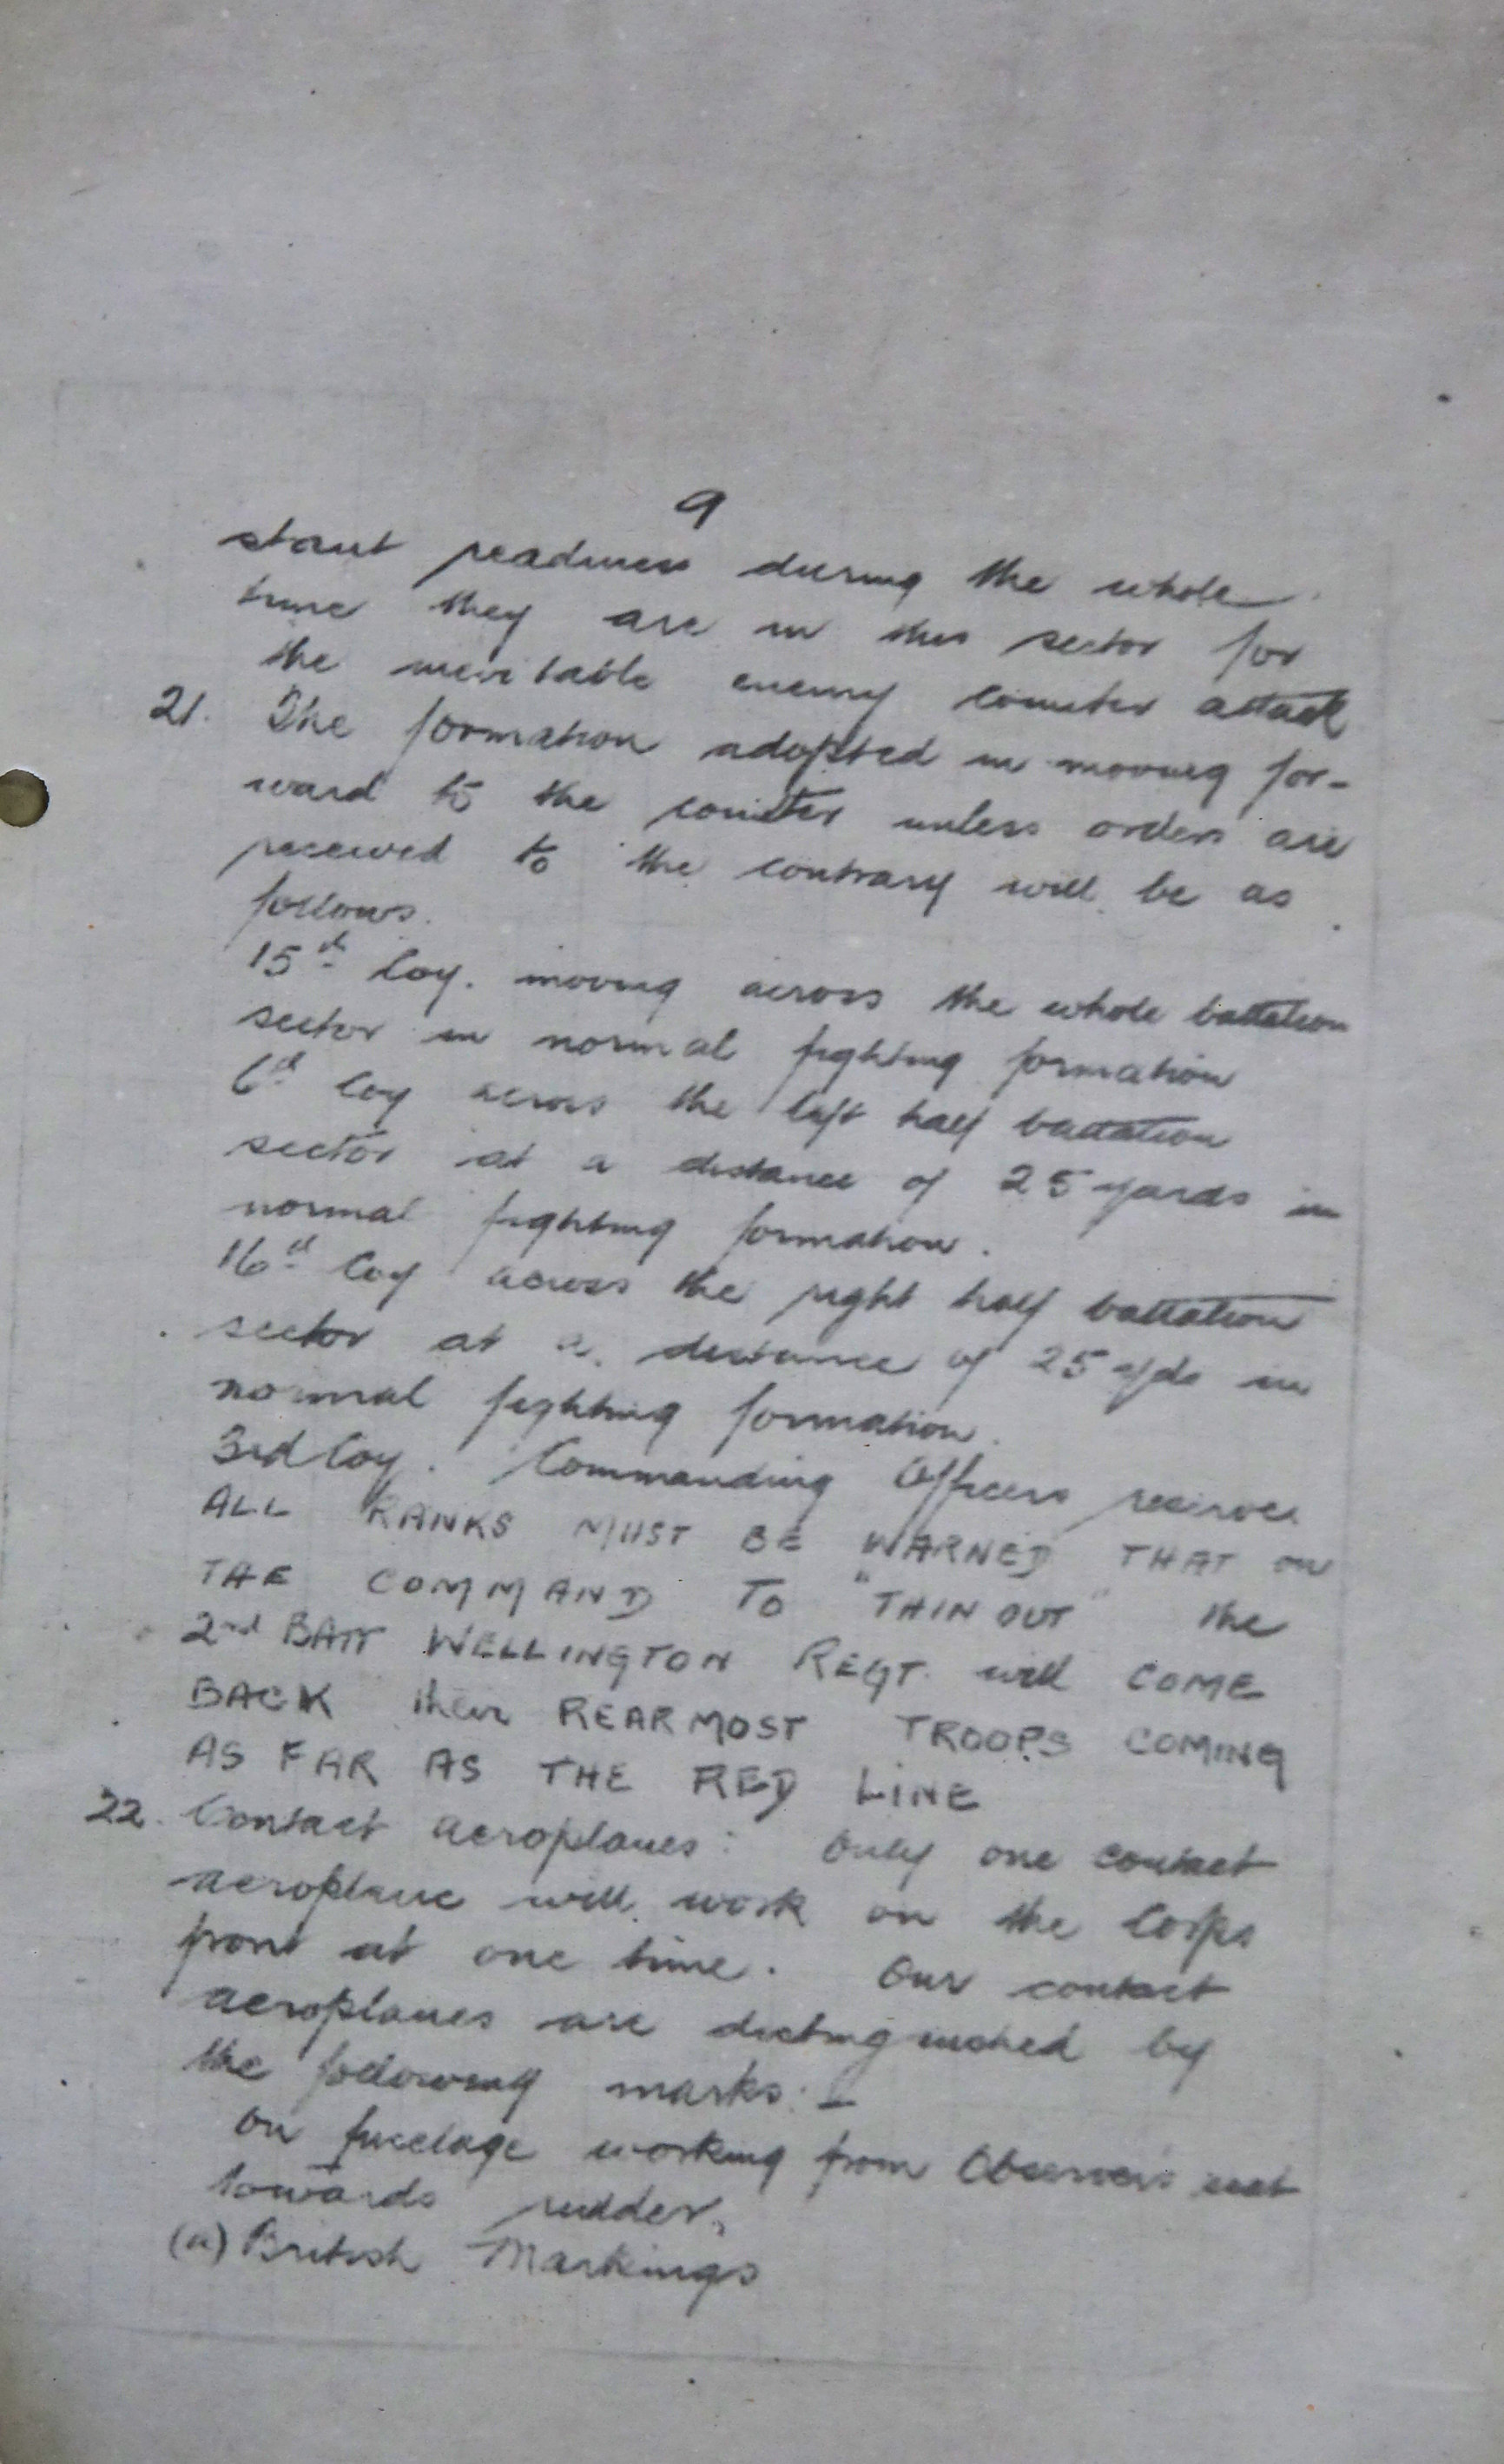 9
stant readiness during the whole
time they are in this sector for
the inevitable enemy counter attack
21. The formation adopted in moving for-
ward to the counter unless orders are
received to the contrary will be as
follows.
15th Coy. moving across the whole battalion
sector in normal fighting formation
6th Coy across the left half battalion
sector at a distance of 25 yards in
normal fighting formation.
16th Coy across the right half battalion
sector at a distance of 25 yds in
normal fighting formation.
3rd Coy. Commanding Officers reserve.
ALL RANKS MUST BE WARNED THAT on
THE COMMAND TO "THIN OUT" the
2nd BATT WELLINGTON REGT. will COME
BACK their REARMOST TROOPS COMING
AS FAR AS THE RED LINE
22. Contact aeroplanes: Only one contact
aeroplane will work on the Corps
front at one time. Our contact
aeroplanes are distinguished by
the following marks:-
On fuselage working from Observers seat
towards rudder,
(a) British Markings